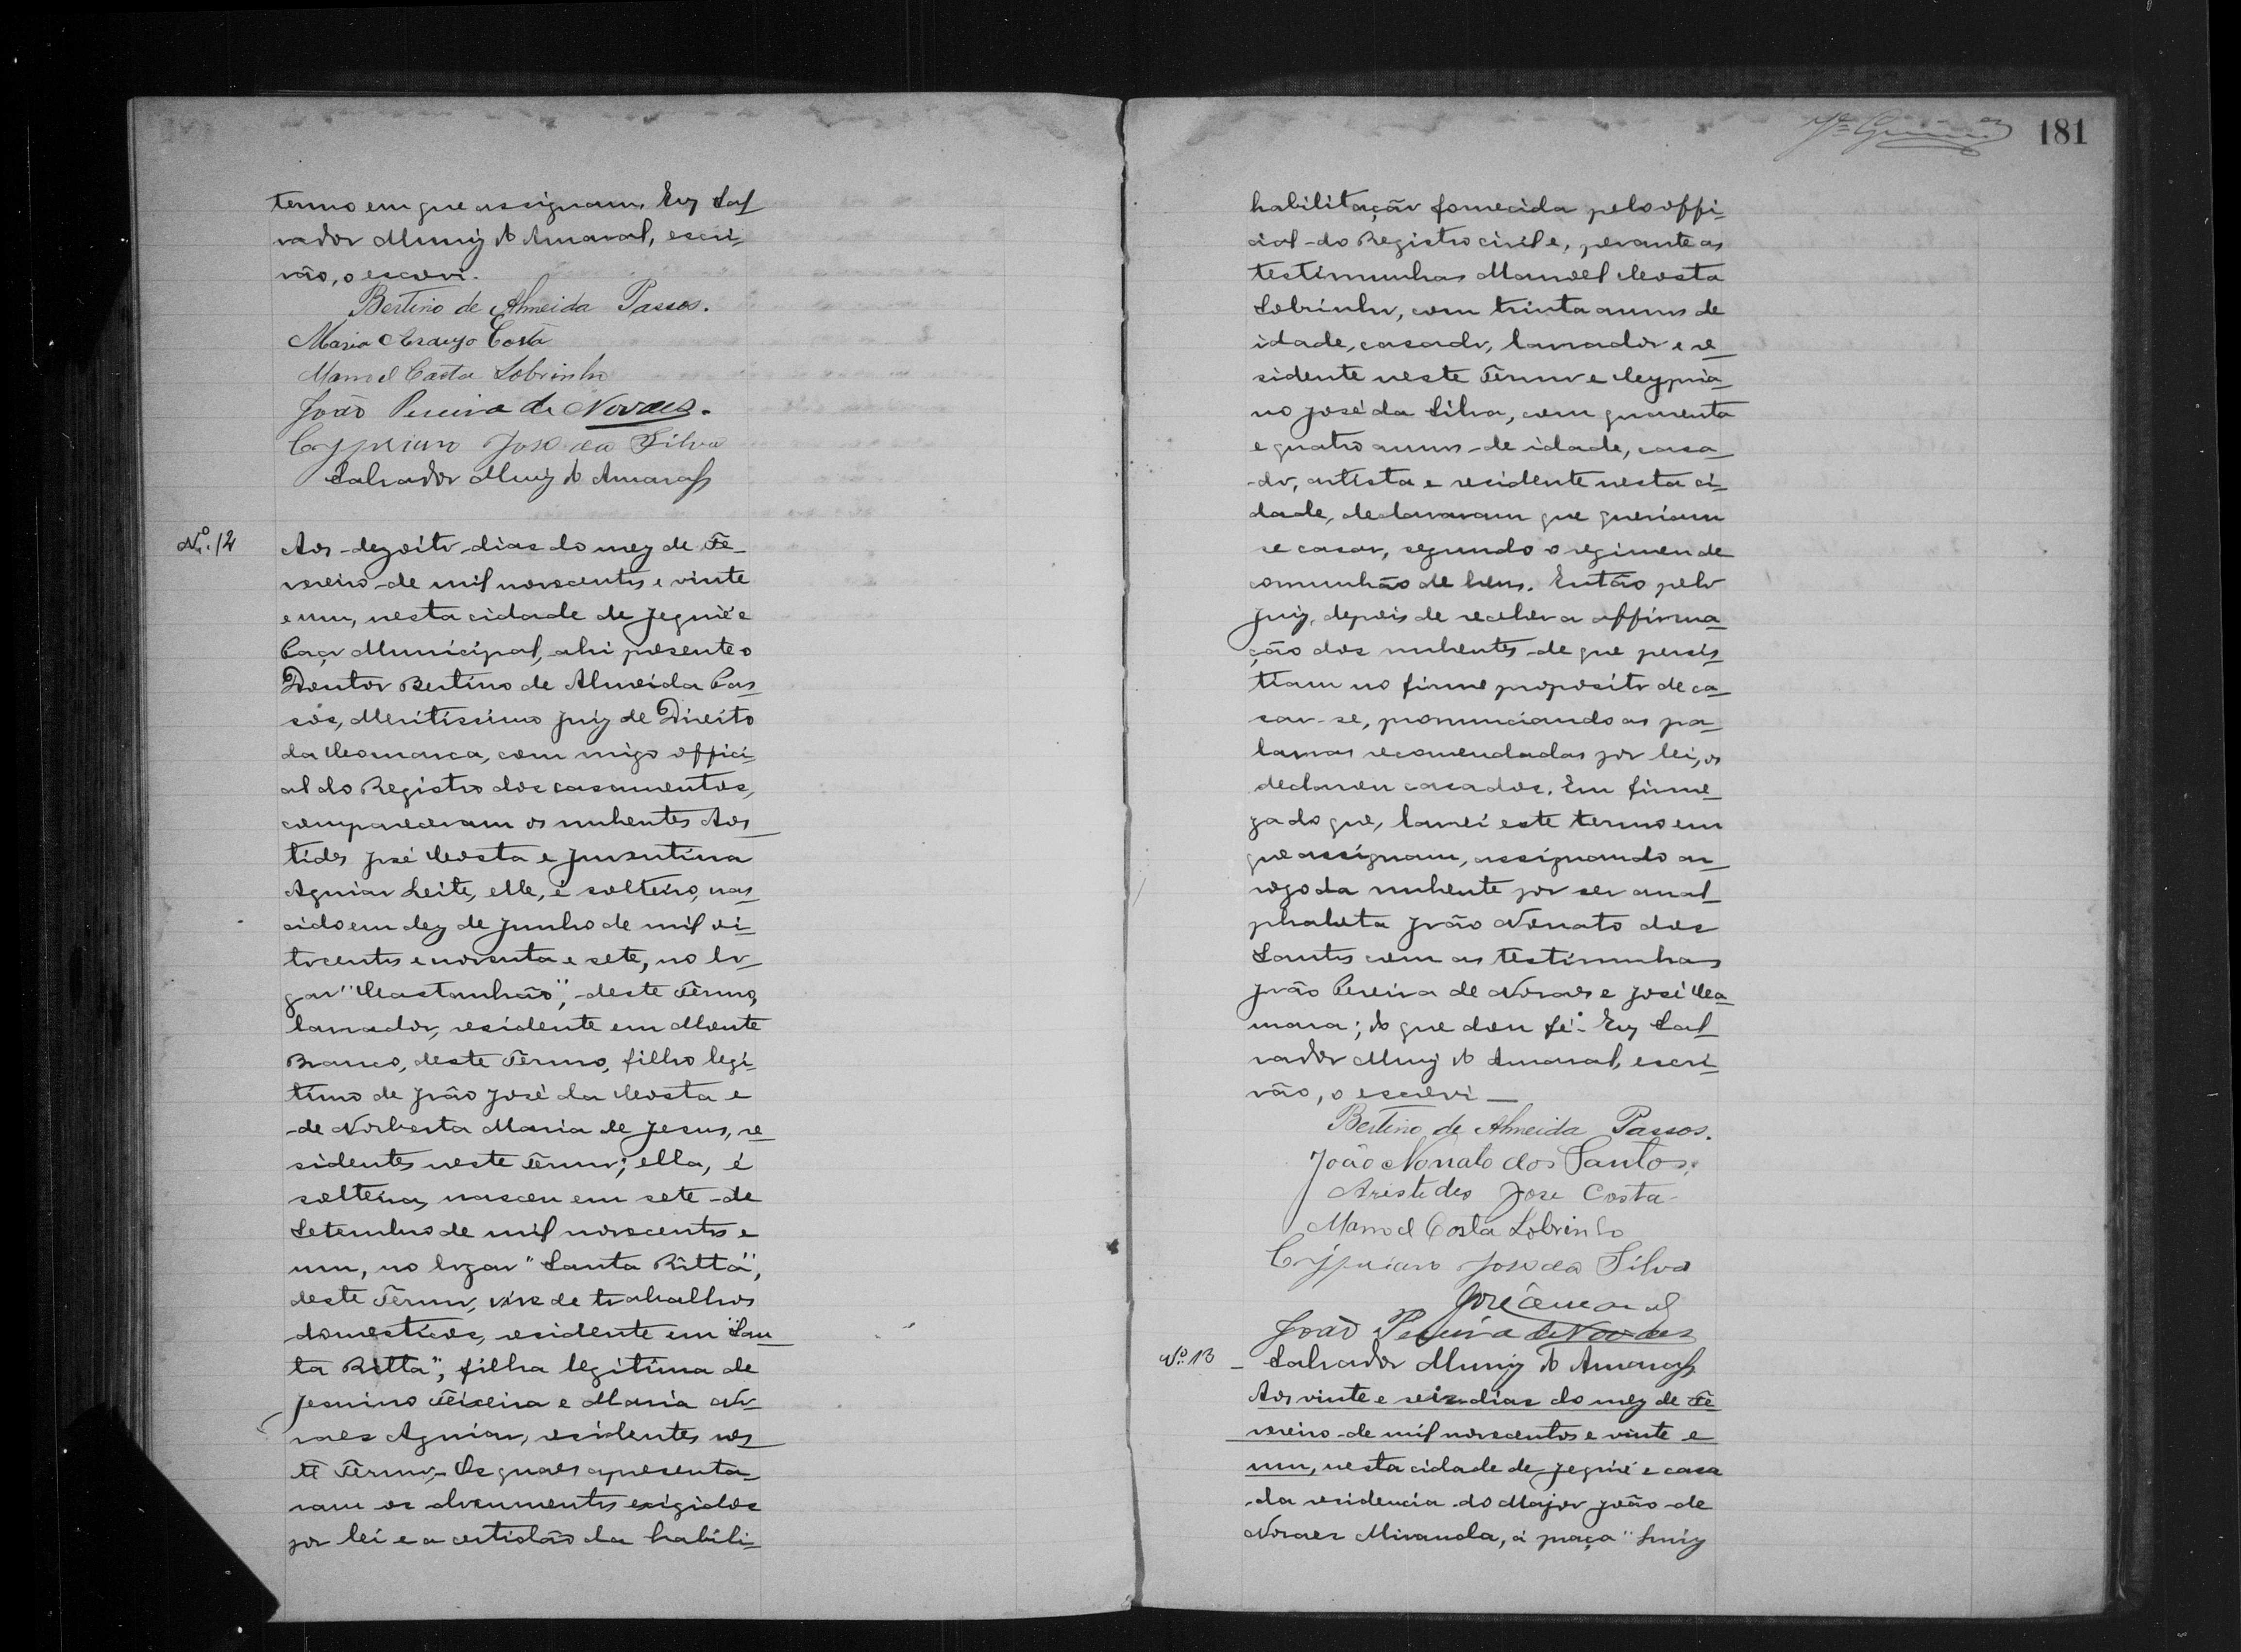 termo em que assignam. Eu, Sal
vador Muniz do Amaral, escri-
vão, o escrevi.
Bertino de Almeida Passos.
Maria Araujo Costa
Manoel Costa Sobrinho
João Pereira de Novaes.
Cypriano José da Silva
Salvador Muniz do Amaral
Nº. 12
Aos dezoito dias do mez de Fe-
vereiro de mil novecentos e vinte
e um, nesta cidade de Jequié e
Paço Municipal, ahi presente o
Doutor Bertino de Almeida Pas
sos, Meritissimo Juiz de Direito
da Comarca, com migo offici-
al do Registro dos casamentos,
compareceram os nubentes Aris
tides José Costa e Juventina
Aguiar Leite, elle, é solteiro, nas
cido em dez de Junho de mil oi-
tocentos e noventa e sete, no lo-
gar "Castanhão", deste Termo,
lavrador, residente em Monte
Branco, deste Termo, filho legi-
timo de João José da Costa e
de Norberta Maria de Jesus, re-
sidentes neste Termo; ella, é
solteira, nasceu em sete de
Setembro de mil novecentos e
um, no logar "Santa Ritta",
deste Termo, vive de trabalhos
domesticos, residente em "San-
ta Ritta", filha legitima de
Jesuino Teixeira e Maria No-
vaes Aguiar, residentes nes
te Termo, Os quaes apresenta-
ram os documentos exigidos
por lei e a certidão da habili-
181
habilitação fornecida pelo offi-
cial do Registro civil e, perante as
testimunhas Manoel Costa
Sobrinho, com trinta annos de
idade, casado, lavrador e re-
sidente neste Termo e Cypria-
no José da Silva, com quarenta
e quatro annos de idade, casa-
do, artista e residente nesta ci-
dade, declararam que queriam
se casar, segundo o regimen de
comunhão de bens. Então pelo
Juiz, depois de receber a affirma-
ção dos nubentes de que persis
tiam no firme proposito de ca-
sar-se, pronunciando as pa-
lavras recomendadas por lei, os
declarou casados. Em firme-
za do que, lavrei este termo em
que assignam, assignando a
rogo da nubente por ser anal-
phabeta João Nonato dos
Santos com as testimunhas
João Pereira de Novaes e José Ca-
mara; do que dou fé. Eu, Sal
vador Muniz do Amaral, escri-
vão, o escrevi —
Bertino de Almeida Passos.
João Nonato dos Santos.
Aristedes Jose Costa
Manoel Costa Sobrinho
Cypriano José da Silva
José
João Pereira de Novaes
Salvador Muniz do Amaral
Nº. 13
Aos vinte e seis dias do mez de Fe-
vereiro de mil novecentos e vinte e
um, nesta cidade de Jequié e casa
da residencia do Major João de
Novaes Miranda, á praça "Luiz